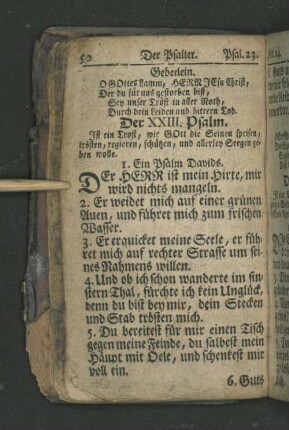 50 Der Psalter. Psal. 23.
Gebetlein.
O GOttes Lamm, HERR JEsu Christ,
Der du für uns gestorben bist,
Sey unser Trost in aller Noth,
Durch dein Leiden und bittern Tod.
Der XXIII. Psalm.
Ist ein Trost, wie GOtt die Seinen speisen,
trösten, regieren, schützen, und allerley Seegen ge-
ben wolle.
1. Ein Psalm Davids.
DEr HERR ist mein Hirte, mir
wird nichts mangeln.
2. Er weidet mich auf einer grünen
Auen, und führet mich zum frischen
Wasser.
3. Er erquicket meine Seele, er füh-
ret mich auf rechter Strasse um sei-
nes Nahmens willen.
4. Und ob ich schon wanderte im fin-
stern Thal, fürchte ich kein Unglück,
denn du bist bey mir, dein Stecken
und Stab trösten mich.
5. Du bereitest für mir einen Tisch
gegen meine Feinde, du salbest mein
Haupt mit Oele, und schenkest mir
voll ein.
6. Guts